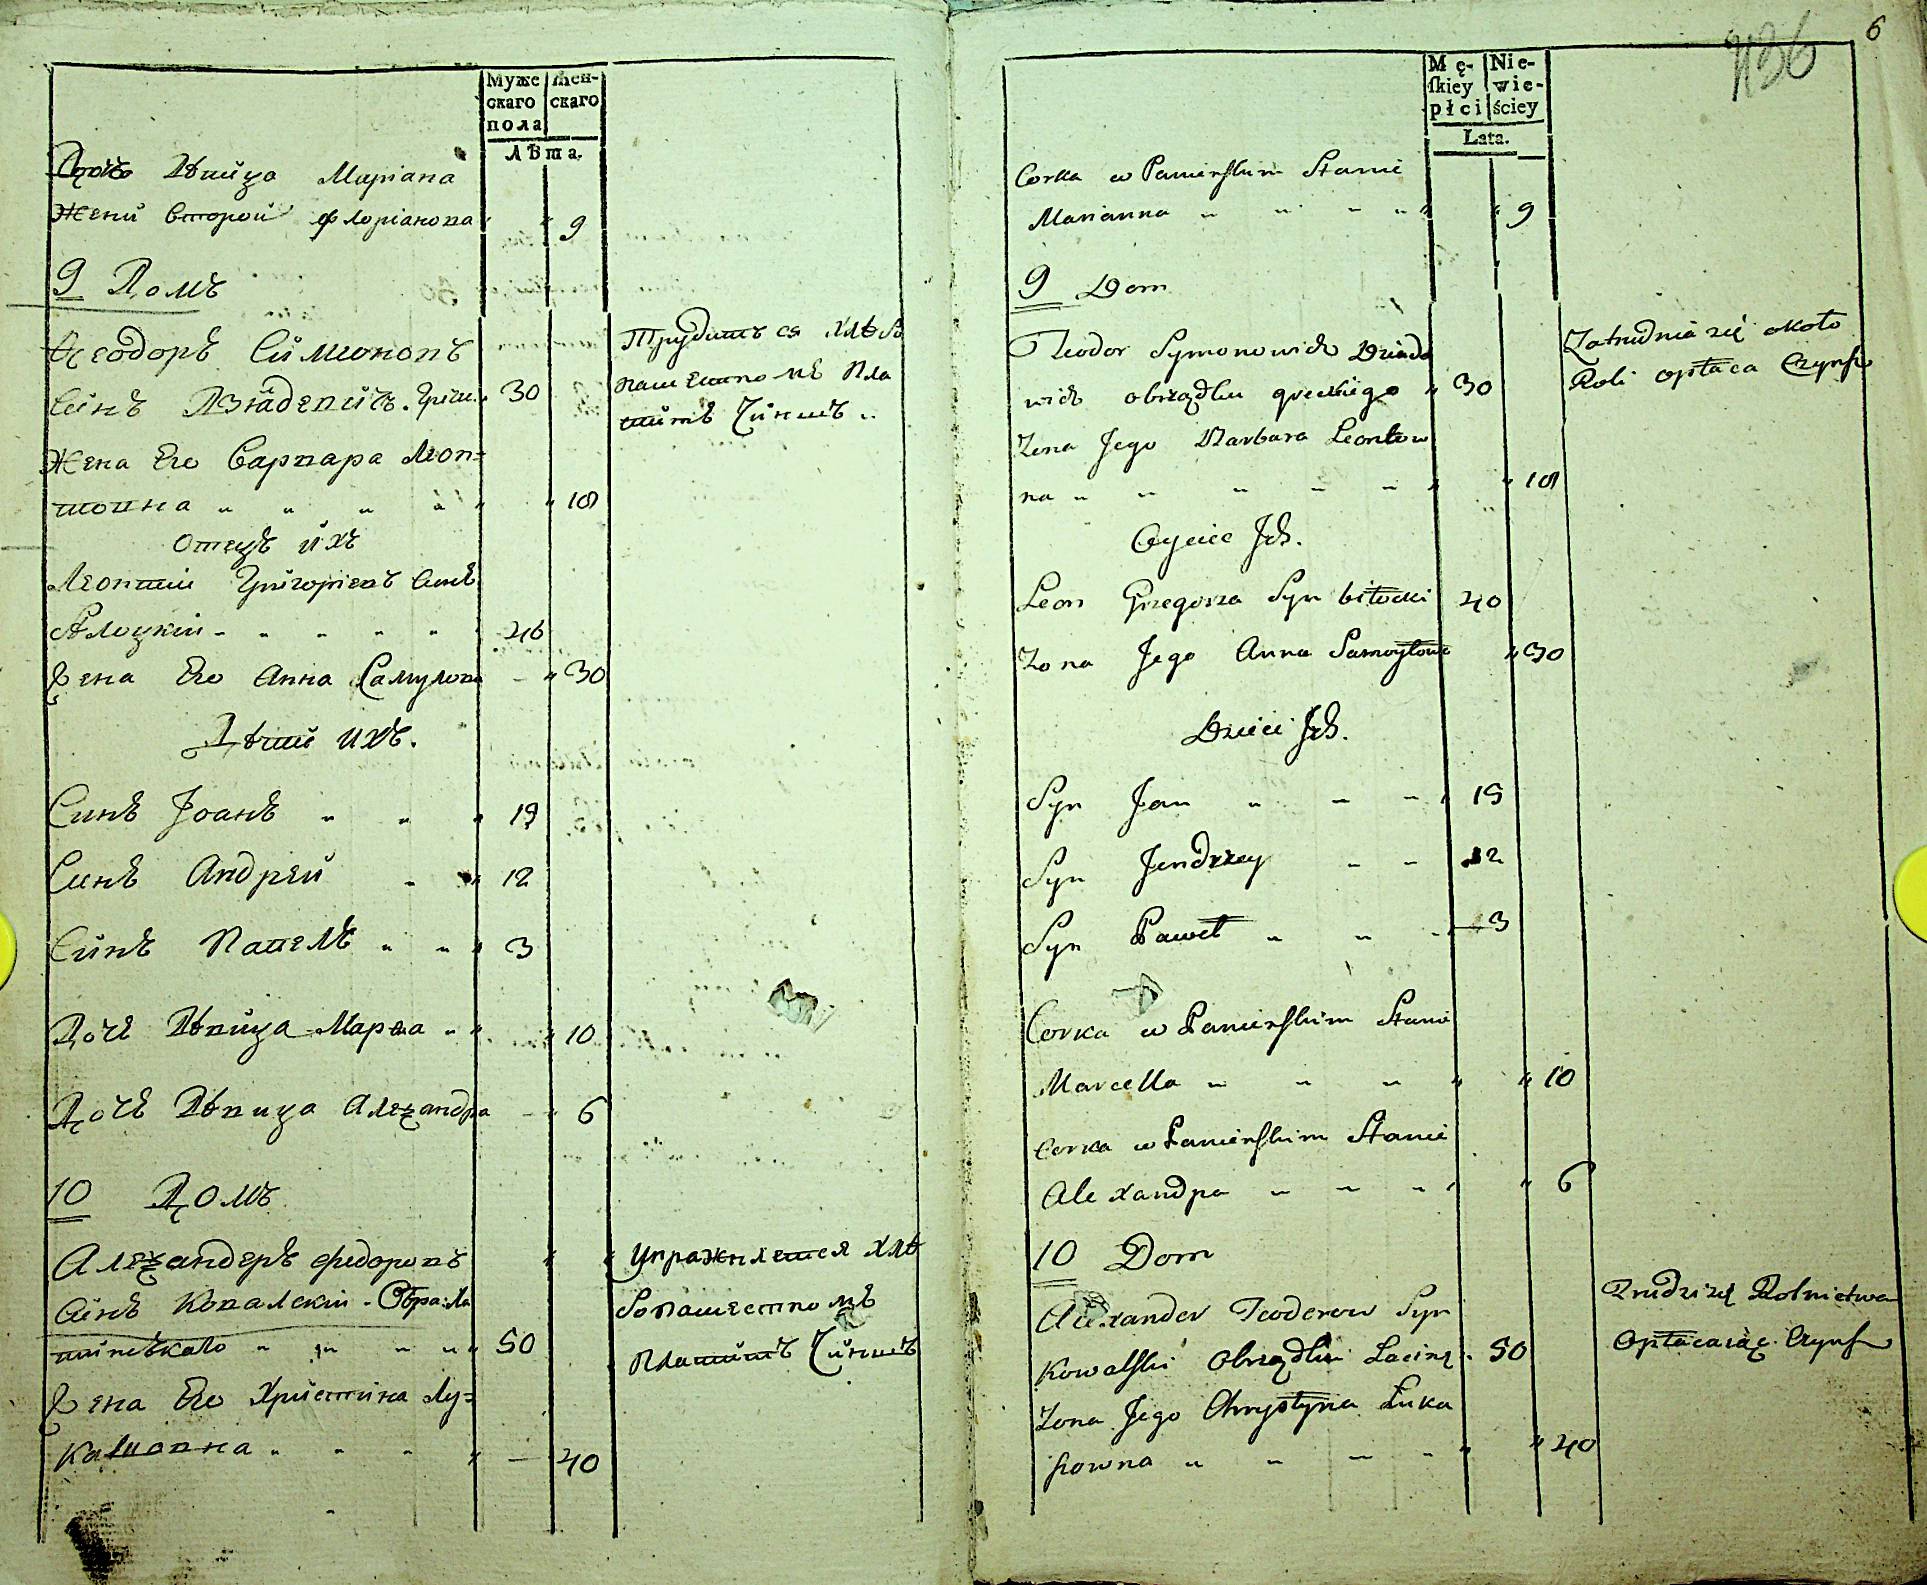 Муже
скаго
пола
жен-
скаго
Лѣта.
Дочь Дѣвица Маріана
Жени второй Флоріанова 9
9 Домъ
Ѳеодоръ Симоновъ
Синъ Дзядевичъ. Греч. 30
Трудитъся хлѣбо
пашествомъ Пла
титъ Чиншъ
Жена Его Варвара Леон=
товна 18
Отецъ ихъ
Леонтіи Григоріевъ Синъ
Бѣлоцкіи 46
Жена Его Анна Самулова 30
Дѣти ихъ.
Синъ Іоанъ 19
Синъ Андрей 12
Синъ Павелъ 3
Дочь Дѣвица Марѳа 10
Дочь Дѣвица Алеѯандра 6
10 Домъ
Алеѯандеръ Федоровъ
Синъ Ковалскіи. Обра: Ла
тинскаго 50
Упражняется хлѣ
бопашествомъ
Платитъ Чиншъ
Жена Его Христина Лу=
кашовна 40
6
136
Mę-
ſkiey
płci
Nie-
wie-
ściey
Lata.
Corka w Panieńskim Stanie
Marianna 9
9 Dom
Teodor Symonowich Dziade
wich obrządku greckiego 30
Zatrudnia się około
Roli opłaca Czynsz
Zona Jego Barbara Leontow
na 18
Oyciec Ich.
Leon Grzegorza Syn białocki 40
Zona Jego Anna Samoyłowa 30
Dzieci Ich.
Syn Jan 19
Syn Jendrzey 12
Syn Paweł 3
Corka w Panieńskim Stanie
Marcella 10
Corka w Panieńskim Stanie
Alexandra 6
10 Dom
Alexander Teoderow Syn
Kowalski Obrządku Łacinz. 50
Trudzi się Rolnictwa
Opłacaiąc Czynsz
Zona Jego Chrystyna Łuka
szowna 40